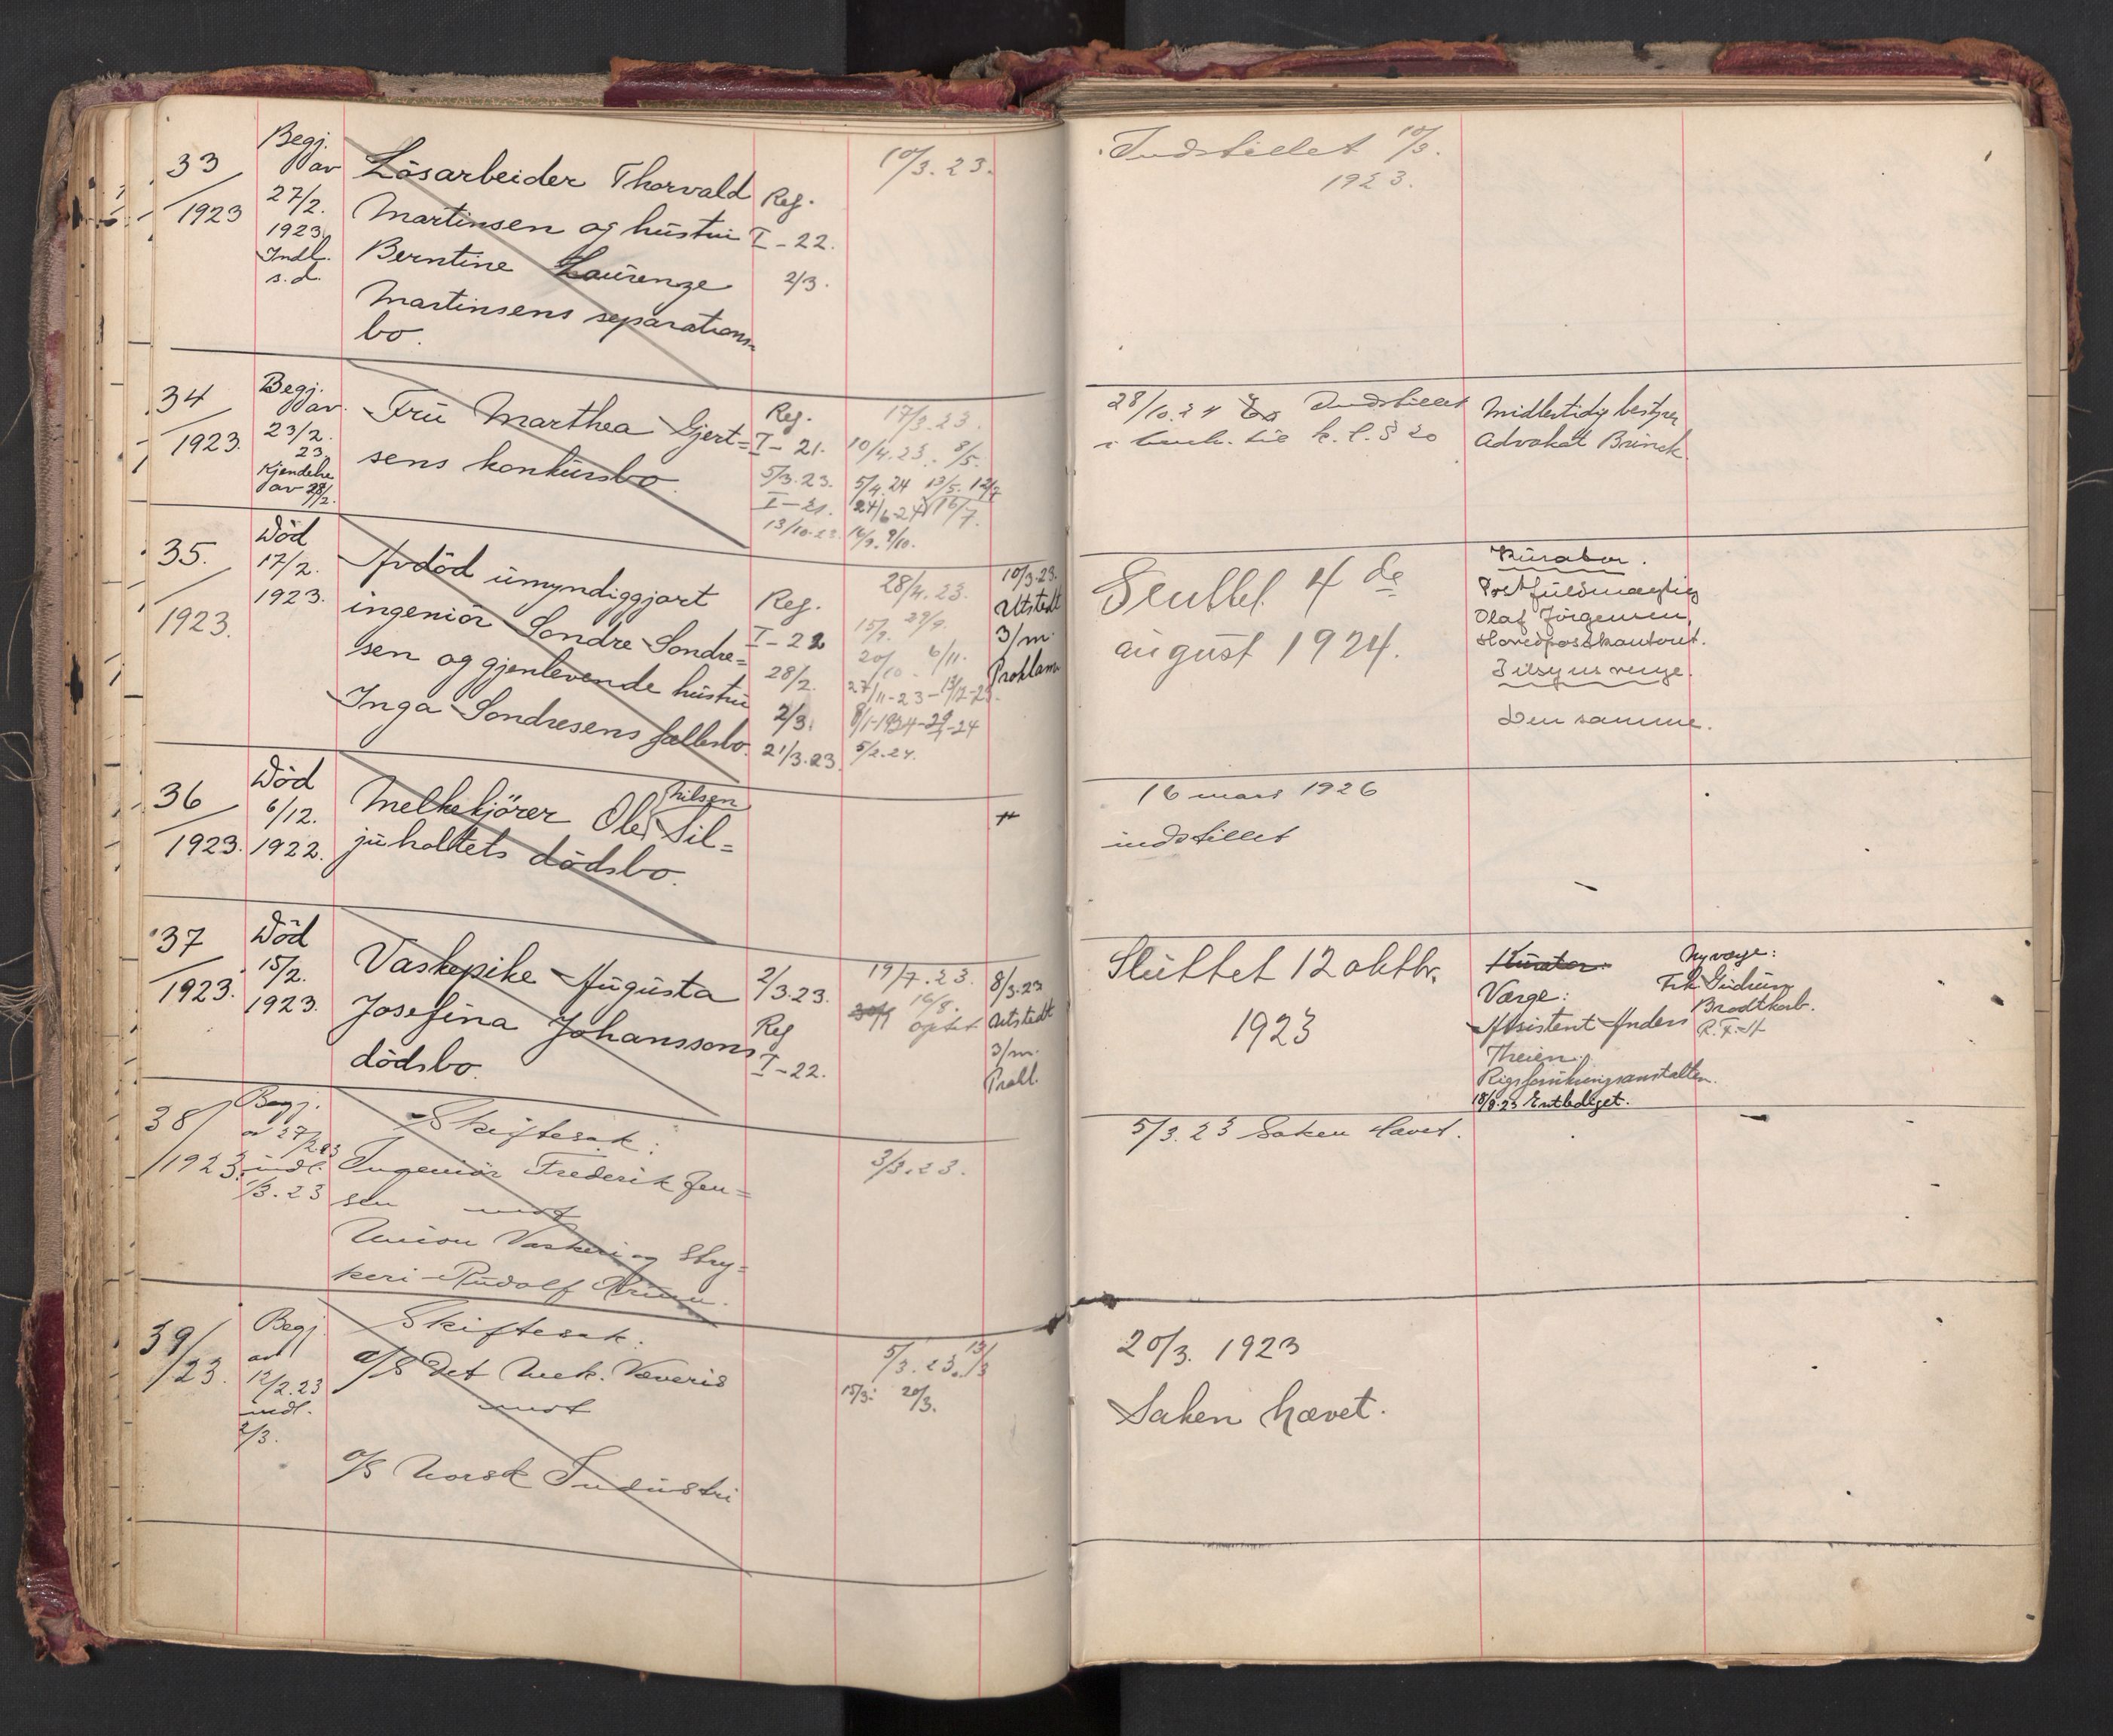 33
1923
Begj.
av
27/2.
1923
Indl.
s.d.
Løsarbeider Thorvald
Martinsen og hustru
Berntine Laurenze
Martinsens separations-
bo.
Reg.
I - 22.
2/3.
10/3.23.
Indstillet 10/3.
1923.
34
1923.
Begj.
av
23/2.
23.
Kjendelse
av 28/2.
Fru Marthea Gjert=
sens konkursbo.
Reg.
I - 21.
5/3.23.
I - 21.
13/10-23.
17/3.23.
10/4.23. 8/5.
5/4.24 13/5. 12/7
24/6-24 16/7.
16/9. 9/10.
28/10.24 Indstillet
k. l. § 20
Midlertidig bestyrer
Advokat Brinck.
35.
1923.
Død
17/2.
1923.
Avdød umyndiggjort
ingeniør Sondre Sondre=
sen og gjenlevende hustru
Inga Sondresens fællesbo.
Reg.
I - 22
28/2.
2/3.
21/3.23.
28/4.23.
15/9. 29/9.
20/10. 6/11.
27/11-23 - 13/12-23.
8/1-1924 - 29/1-24
5/2.24.
10/3.23.
Utstedt
3/m.
Proklama
Sluttet 4de
august 1924.
Kurator.
Postfuldmægtig
Olaf Jørgensen,
Hovedpostkontoret.
Tilsynsverge.
Den samme.
36
1923.
Død
6/12.
1922.
Melkekjører Ole Nilsen Sil=
juholtets dødsbo.
16 mars 1926
indstillet
37
1923.
Død
15/2.
1923.
Vaskepike Augusta
Josefina Johanssons
dødsbo.
2/3.23.
Reg
I - 22.
19/7.23.
16/8.
8/3.23
Utstedt
3/m.
Prokl.
Sluttet 12 oktbr.
1923
Kurator:
Værge:
Assistent Anders
Theien,
Rigsforsikringsanstalten.
18/9.23 Entlediget.
Ny værge:
Frk Gudrun
Brodtkorb.
R.F.A
38
1923.
Begj.
av 27/2.23
indl.
1/3.23
Skiftesak:
Ingeniør Frederik Jen=
sen
mot
Union Vaskeri og Stry=
keri Rudolf
3/3.23.
5/3.23 Saken hævet.
39/
/23.
Begj.
av
12/2.23
indl.
2/3.
Skiftesak.
a/S Det Mek. Væveris
mot
a/S Norsk Industri
5/3.23. 13/3
15/3. 20/3.
20/3. 1923
Saken hævet.